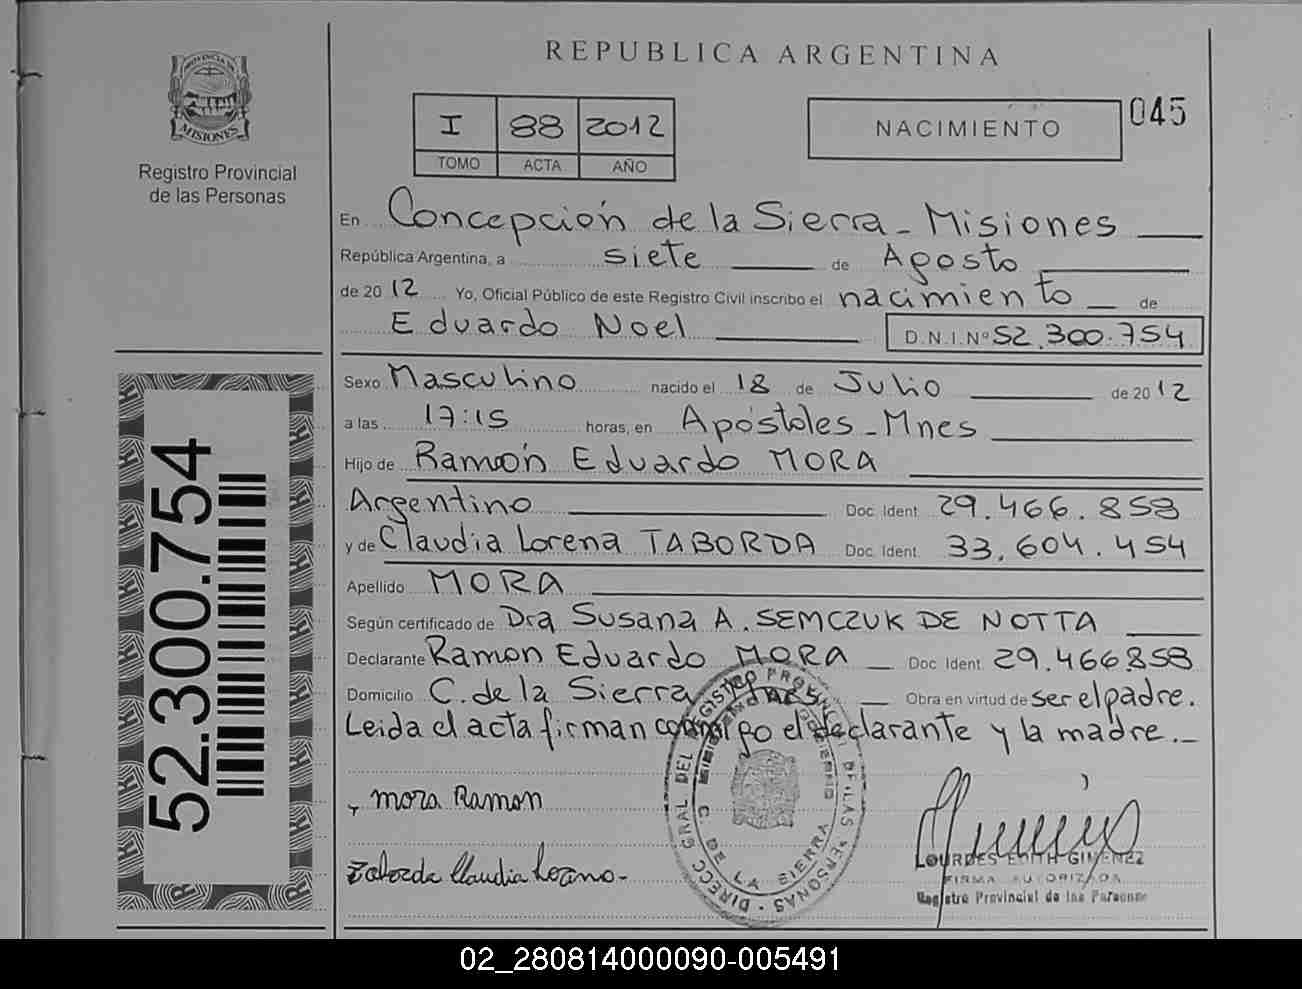 REPUBLICA ARGENTINA
PROVINCIA DE
MISIONES
Registro Provincial
de las Personas
I 88 2012
TOMO ACTA AÑO
NACIMIENTO
045
En Concepción de la Sierra - Misiones
República Argentina, a siete de Agosto
de 2012 Yo, Oficial Público de este Registro Civil inscribo el nacimiento de
Eduardo Noel D.N.I.Nº 52.300.754
Sexo Masculino nacido el 18 de Julio de 2012
a las 17:15 horas, en Apóstoles - Mnes
Hijo de Ramón Eduardo MORA
Argentino Doc. Ident. 29.466.858
y de Claudia Lorena TABORDA Doc. Ident. 33.604.454
Apellido MORA
Según certificado de Dra Susana A. SEMCZUK DE NOTTA
Declarante Ramon Eduardo MORA Doc. Ident. 29.466858
Domicilio C. de la Sierra Mnes Obra en virtud de ser el padre.
Leida el acta firman conmigo el declarante y la madre.-
52.300.754
mora Ramon
Taborda Claudia Lorena-
DIRECC GRAL DEL REGISTRO PROVINCIAL DE LAS PERSONAS
C. DE LA SIERRA
LOURDES EDITH GIMENEZ
FIRMA AUTORIZADA
Registro Provincial de las Personas
02_280814000090-005491